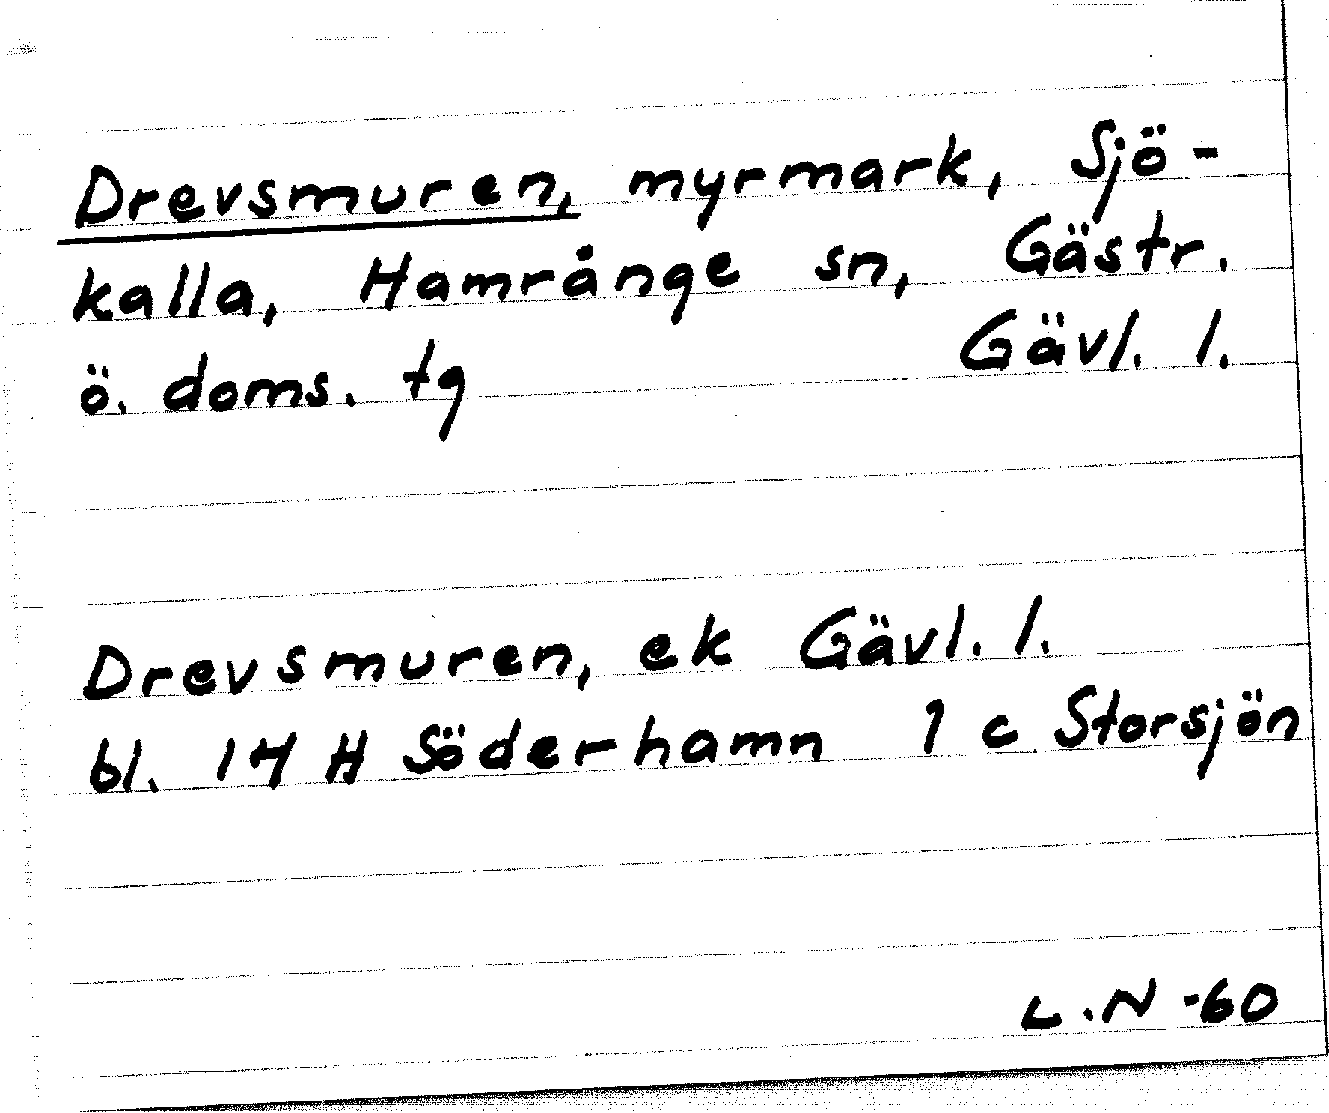 Drevsmuren, myrmark, Sjö-
kalla, Hamrånge sn, Gästr.
ö. doms. tg Gävl. l.
Drevsmuren, ek Gävl. l.
bl. 14 H Söderhamn 1 c Storsjön
L.N -60